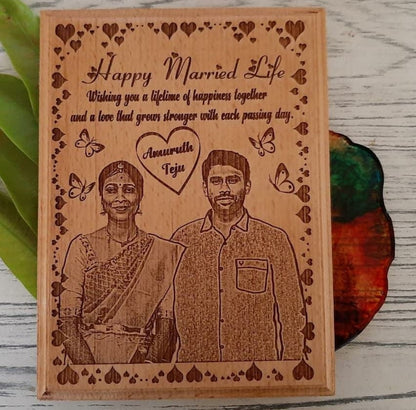 Happy Married Life
Wishing you a lifetime of happiness together
and a love that grows stronger with each passing day.
Amuruth
Teju